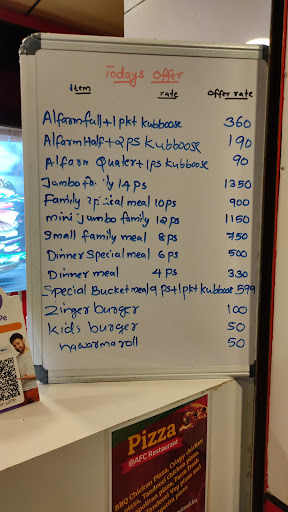 Todays Offer
Item rate Offer rate
Alfarm full + 1 pkt kubboose 360
Alfarm Half + 2 ps kubboose 190
Alfarm Quater + 1 ps kubboose 90
Jumbo family 14 ps 1350
Family special meal 10 ps 900
mini jumbo family 12 ps 1150
Small family meal 8 ps 750
Dinner Special meal 6 ps 500
Dinner meal 4 ps 330
Special Bucket meal 9 ps + 1 pkt kubboose 599
Zinger burger 100
Kids burger 50
hawarma roll 50
Pizza
@AFC Restaurant
BBQ Chicken Pizza, Crispy chicken